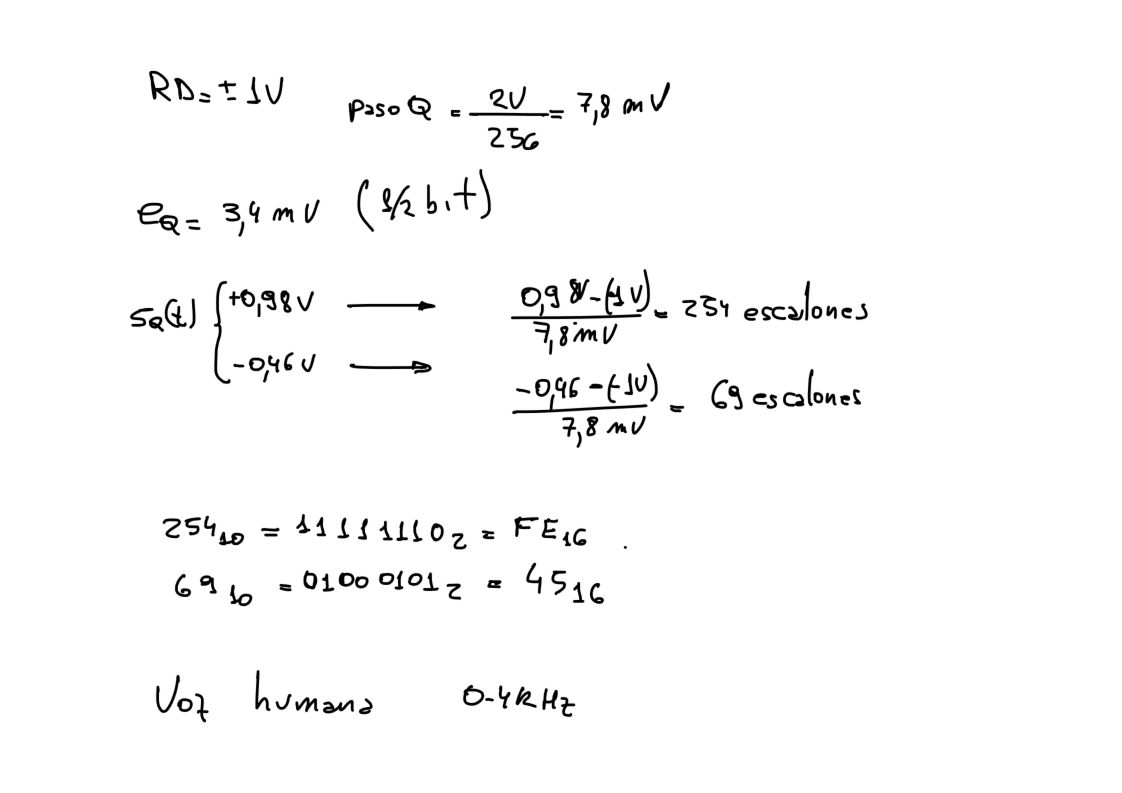 RD = ± 1V
paso Q = 2V / 256 = 7,8 mV
eQ = 3,4 mV (1/2 bit)
SQ(t) { +0,98V → 0,98V-(-1V) / 7,8mV = 254 escalones
-0,46V → -0,46-(-1V) / 7,8 mV = 69 escalones
254₁₀ = 11111110₂ = FE₁₆
69₁₀ = 01000101₂ = 45₁₆
Voz humana 0-4kHz